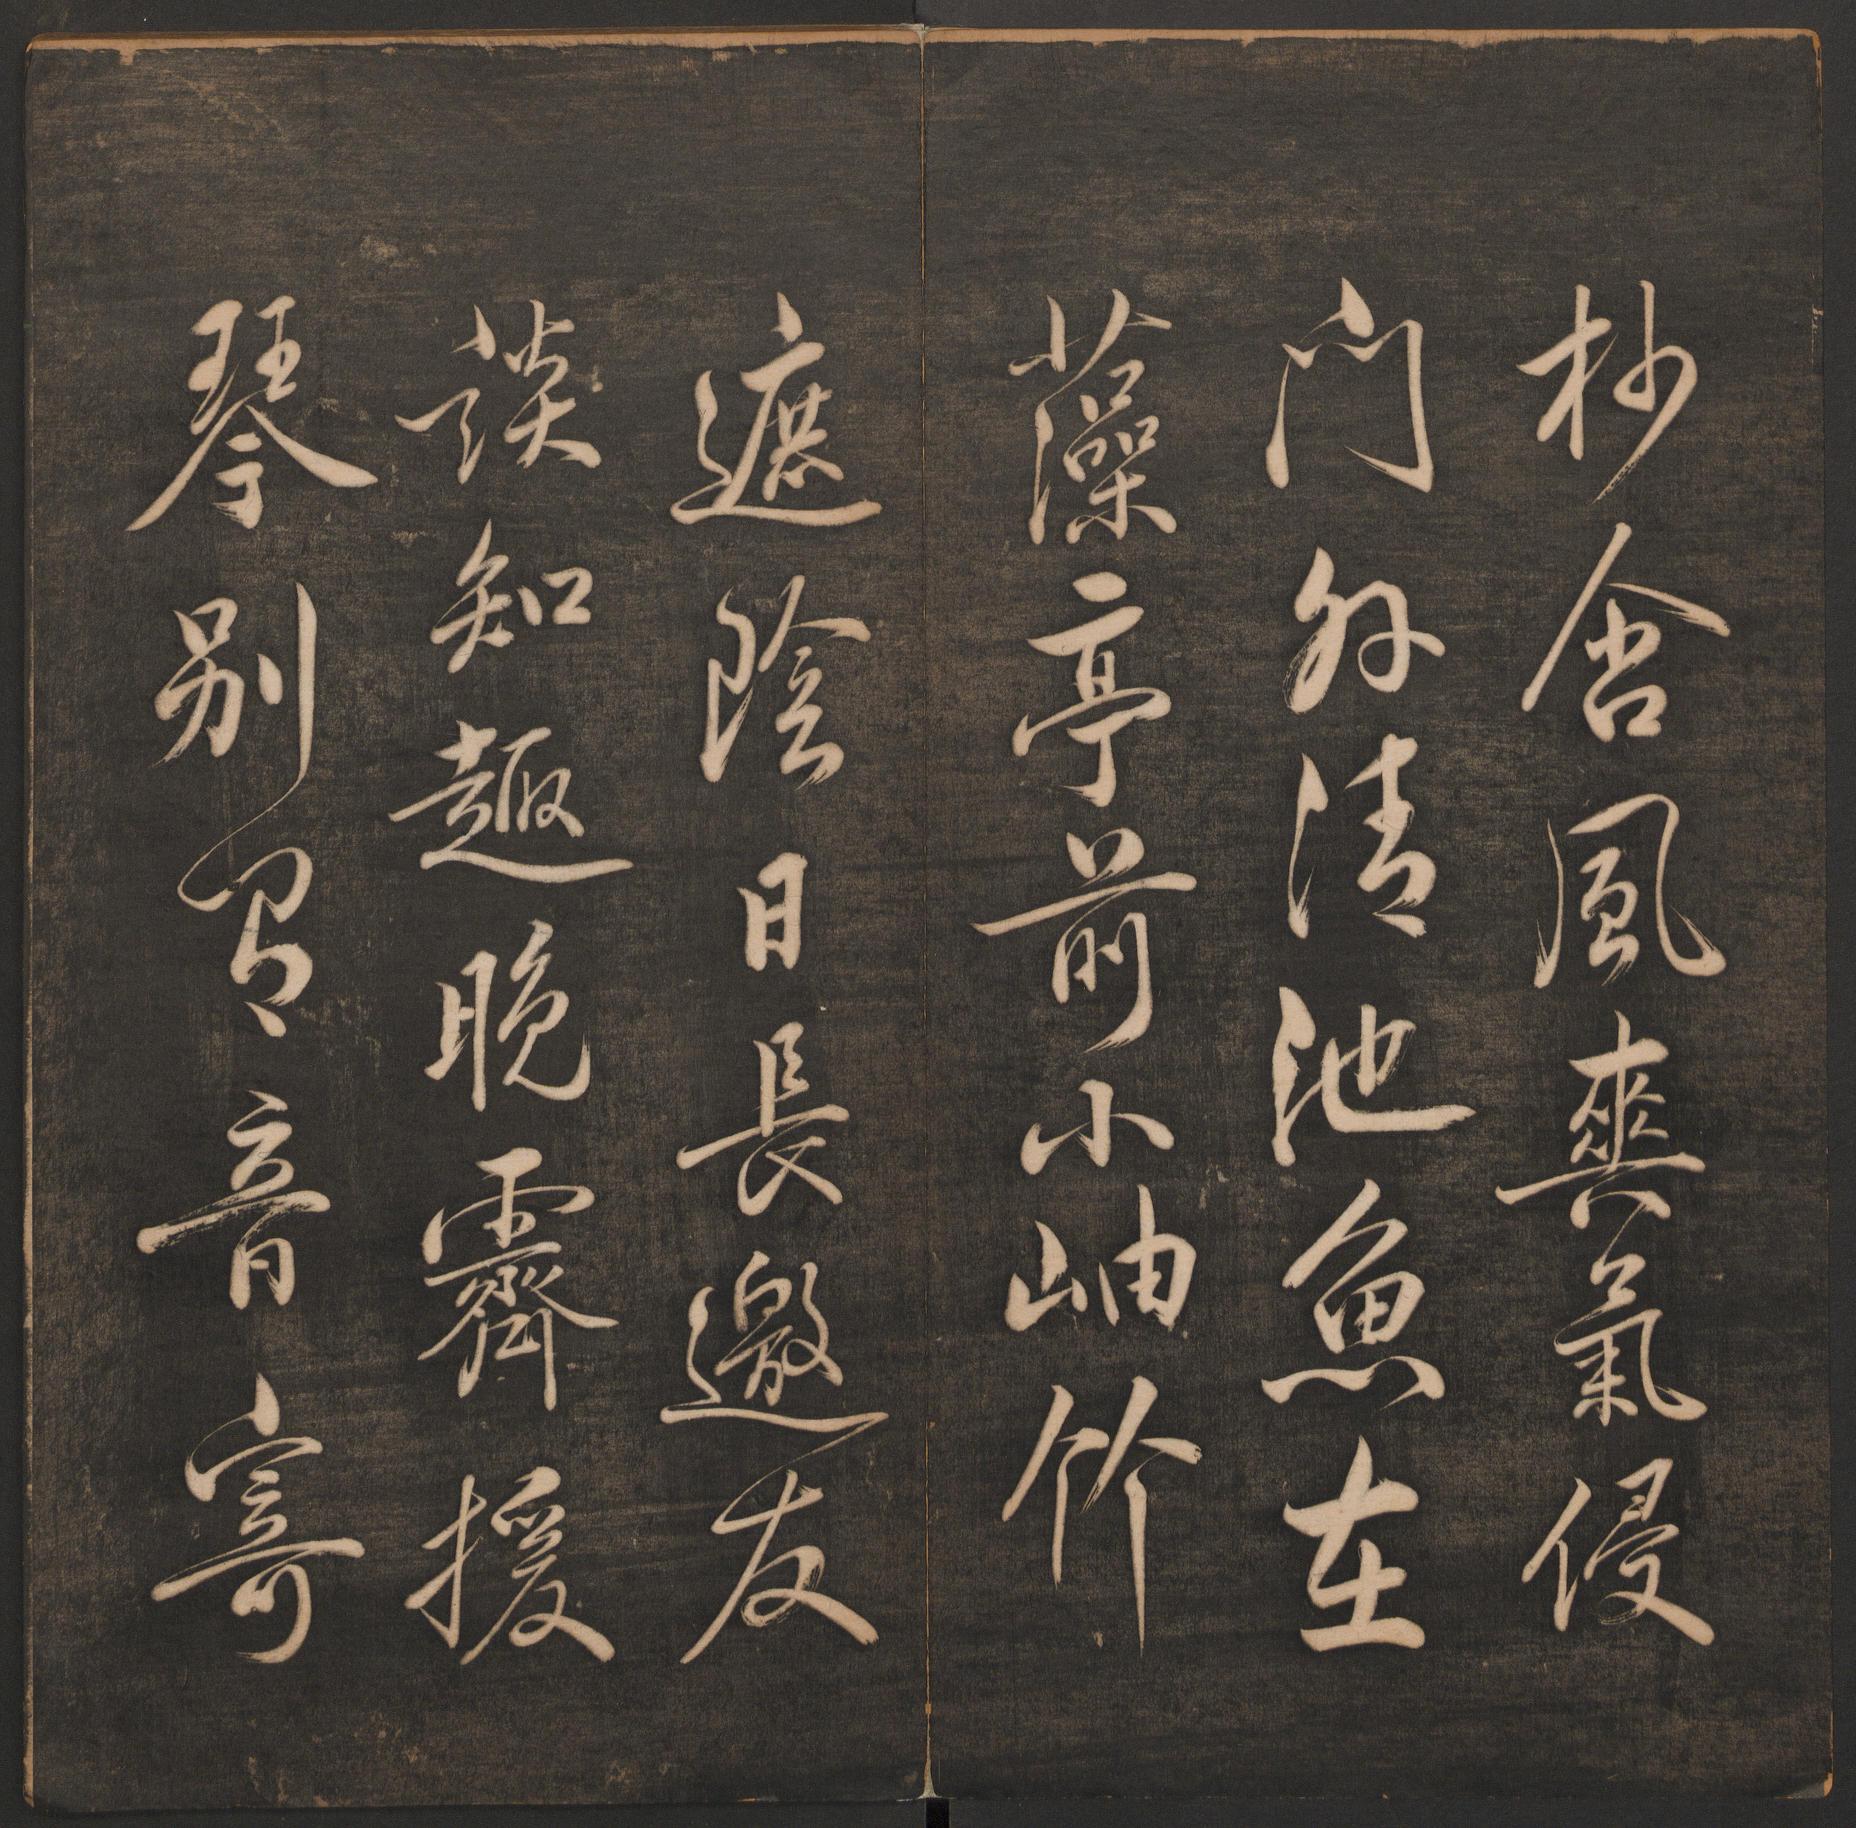 杪含風爽氣侵
門外清池魚在
藻亭前小岫竹
遮陰日長邀友
談知趣晚霽援
琴別音寄